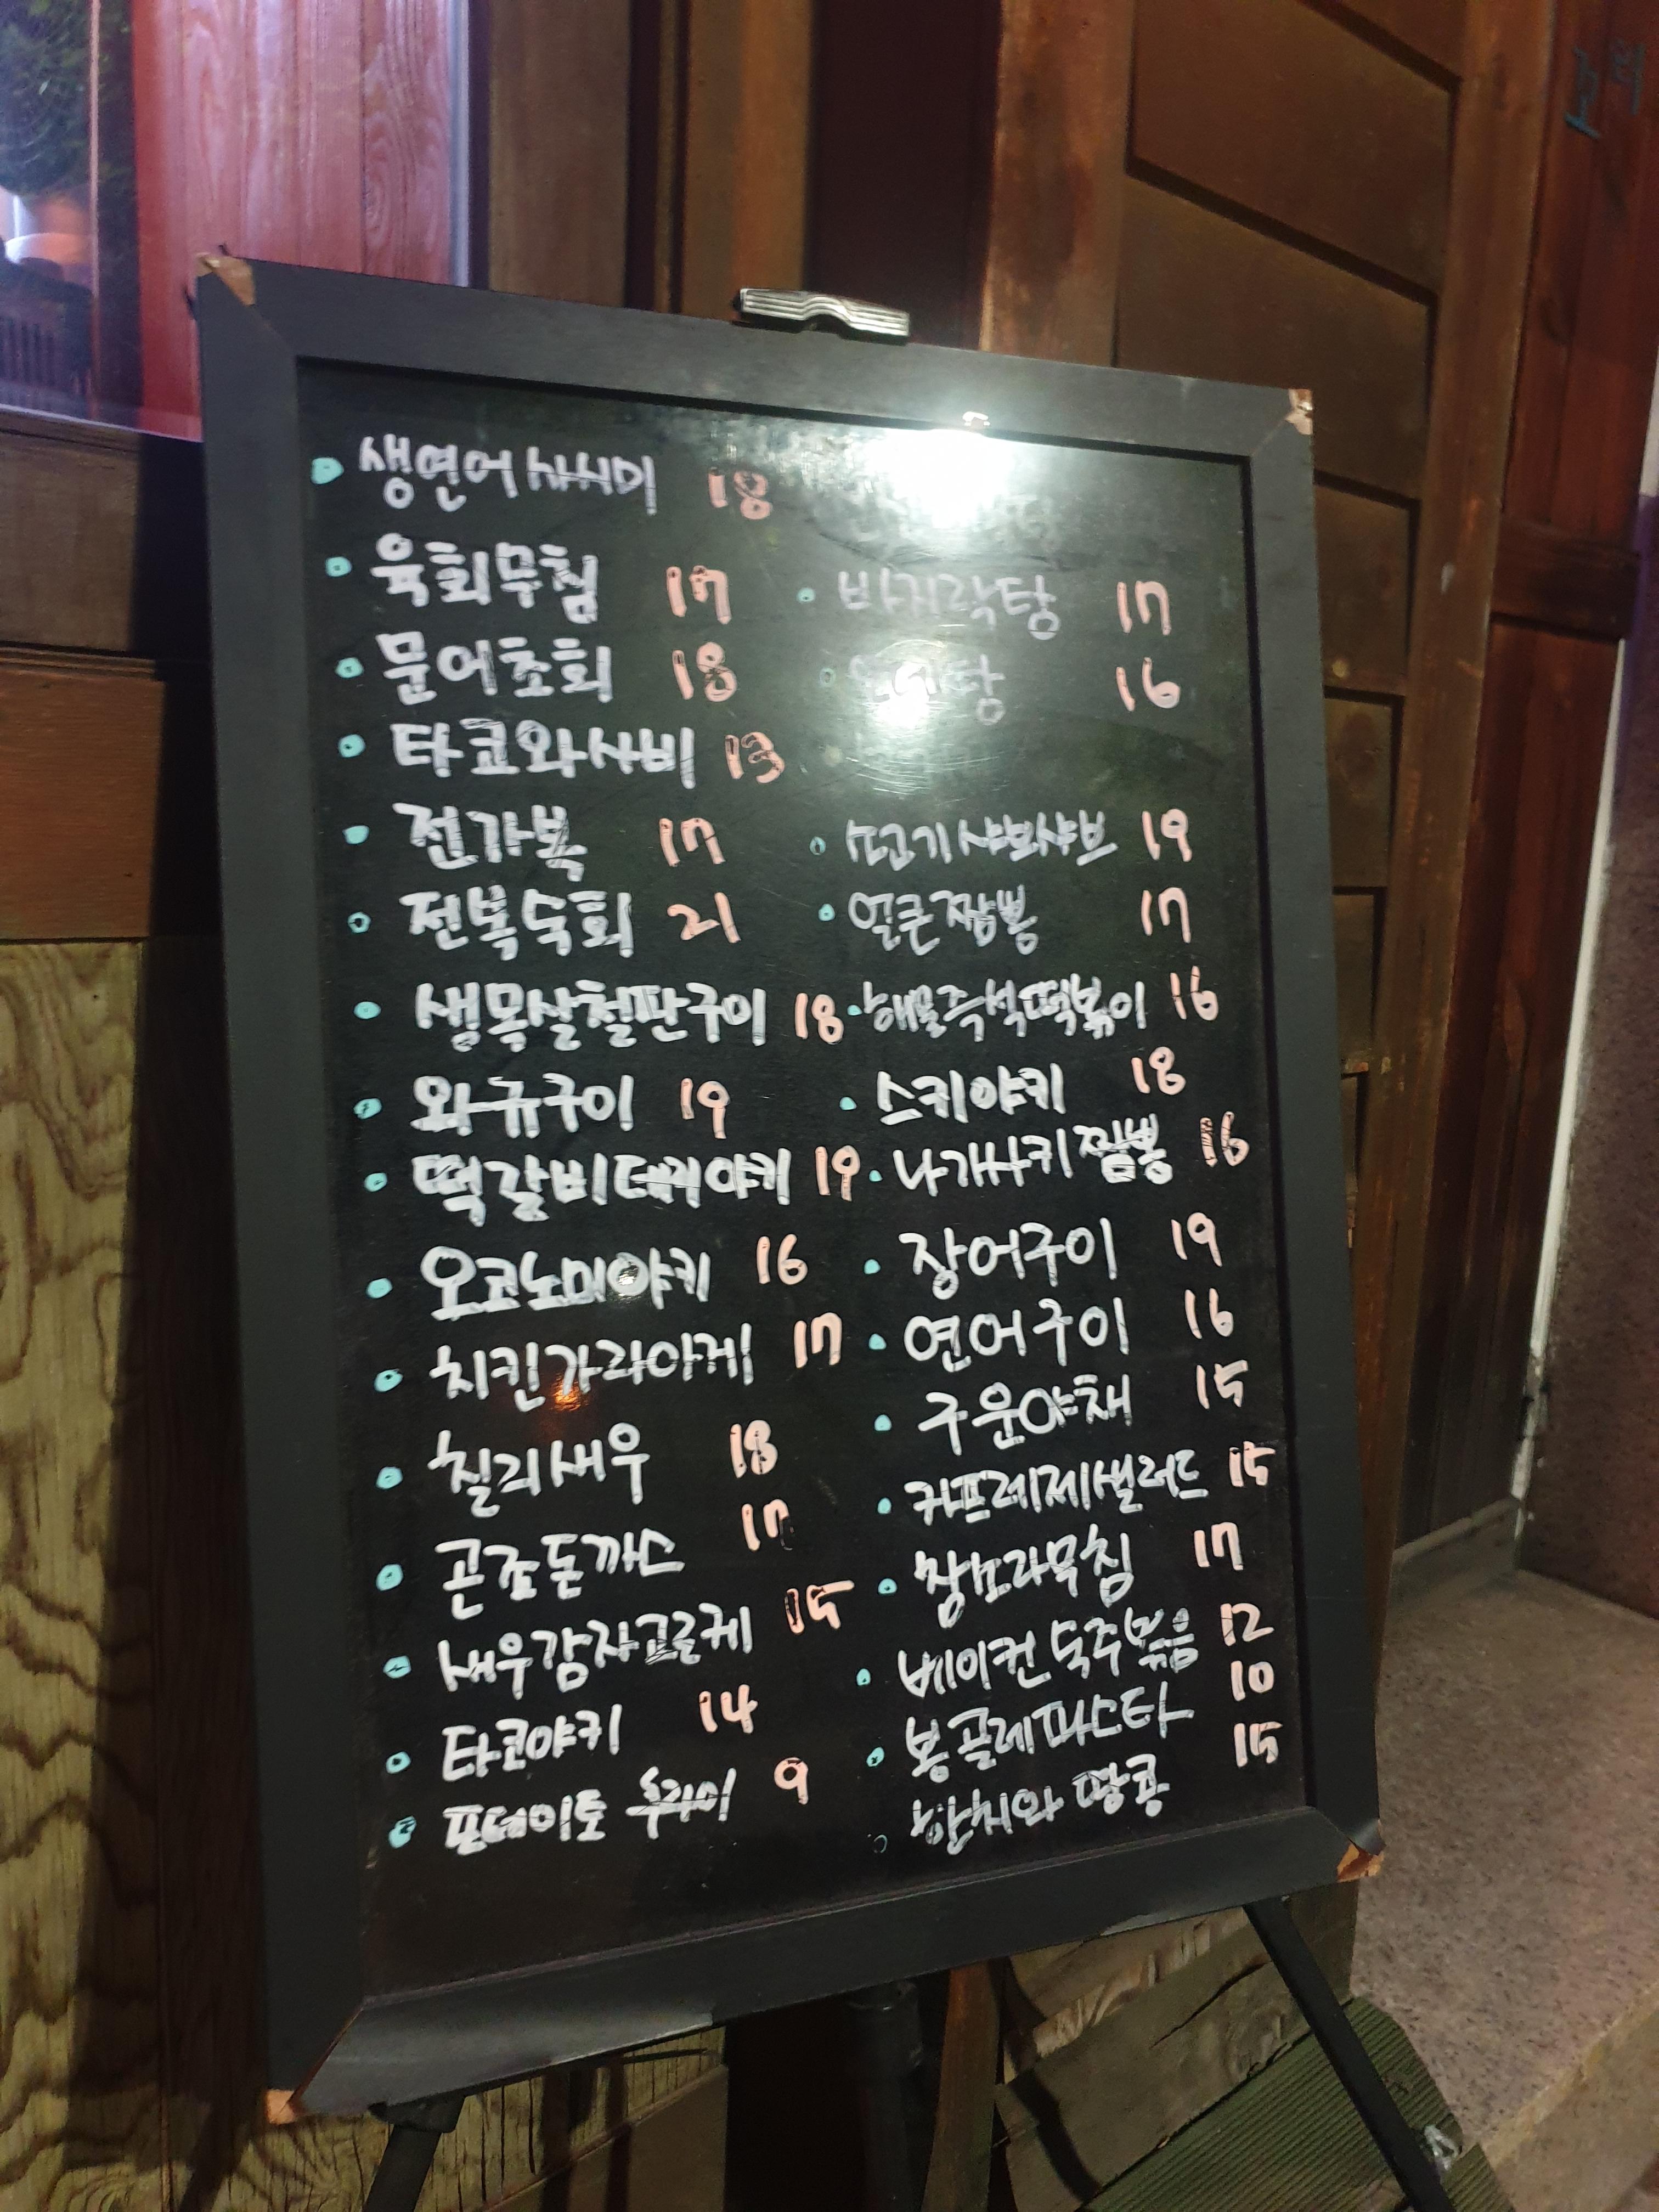 생연어사시미 18
육회무침 17
문어초회 18
타코와사비 13
전가복 17
전복숙회 21
생목살철판구이 18
와규구이 19
떡갈비데리야키 19
오코노미야키 16
치킨가라아게 17
칠리새우 18
곤조돈까스 17
새우감자고로케 15
타코야키 14
포테이토 후라이 9
바지락탕 17
16
소고기샤브샤브 19
얼큰짬뽕 17
해물즉석떡볶이 16
스키야키 18
나가사키짬뽕 16
장어구이 19
연어구이 16
구운야채 15
카프레제샐러드 15
창난무침 17
베이컨숙주볶음 12
봉골레파스타 10
한치와 땅콩 15